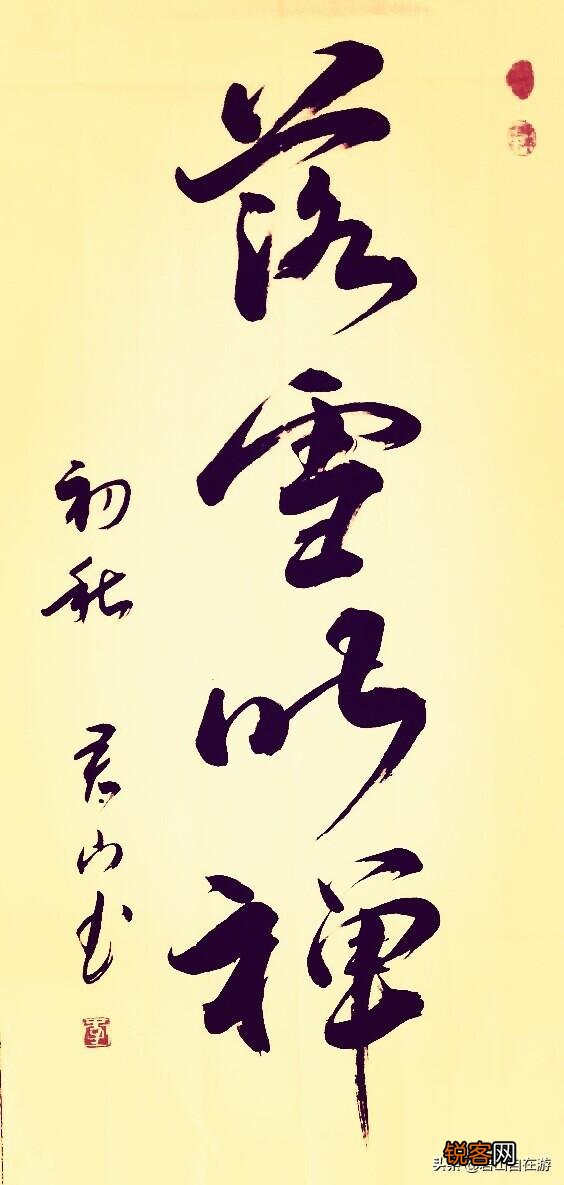 落雪听禅
初秋 君山书
锐客网
头条 @君山自在游